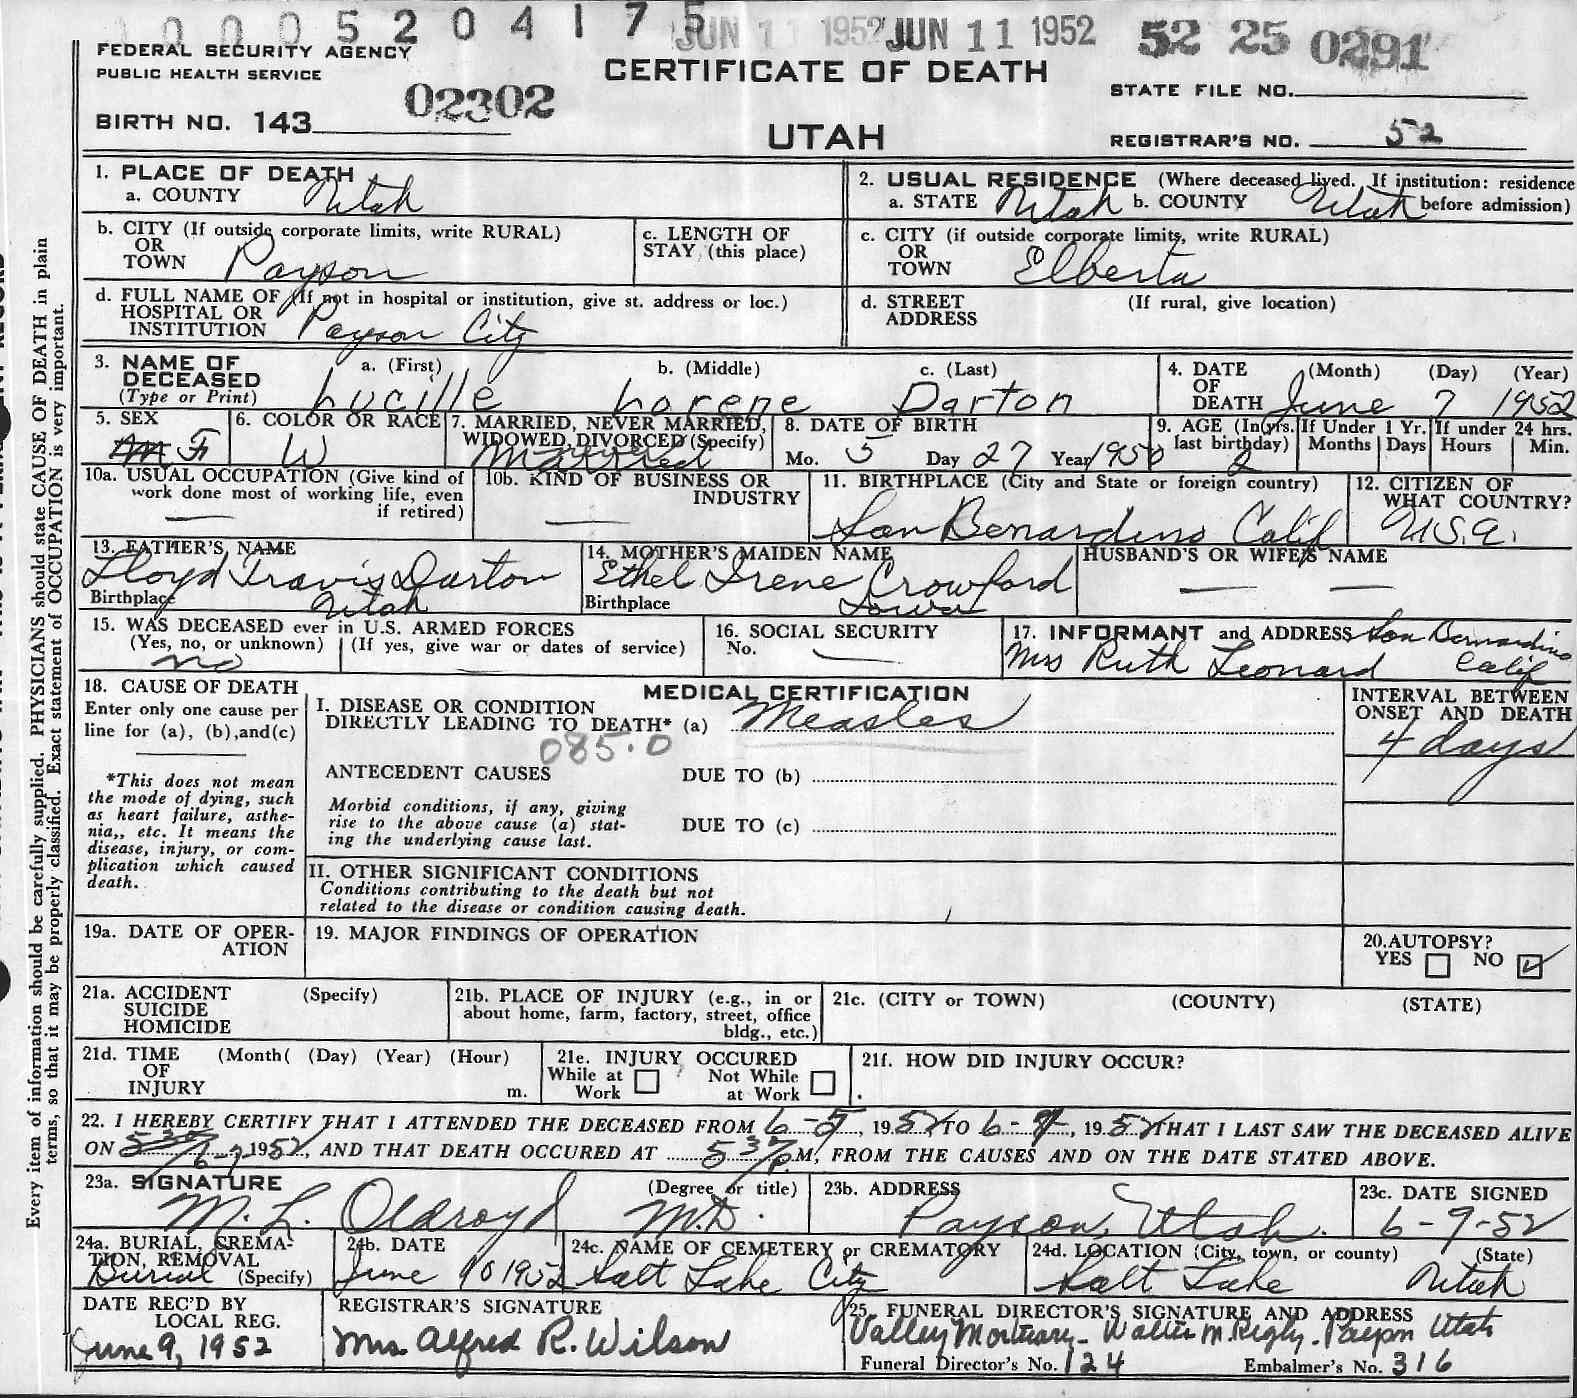 0 0 0 5 2 0 4 1 7 5 JUN 11 1952 JUN 11 1952 52 25 0291
FEDERAL SECURITY AGENCY
PUBLIC HEALTH SERVICE
CERTIFICATE OF DEATH
STATE FILE NO.
BIRTH NO. 143 02302
UTAH
REGISTRAR'S NO. 52
1. PLACE OF DEATH
a. COUNTY Utah
2. USUAL RESIDENCE (Where deceased lived. If institution: residence before admission)
a. STATE Utah b. COUNTY Utah
b. CITY (If outside corporate limits, write RURAL)
OR
TOWN Payson
c. LENGTH OF
STAY (this place)
c. CITY (if outside corporate limits, write RURAL)
OR
TOWN Elberta
d. FULL NAME OF (If not in hospital or institution, give st. address or loc.)
HOSPITAL OR
INSTITUTION Payson City
d. STREET
ADDRESS
(If rural, give location)
3. NAME OF
DECEASED
(Type or Print)
a. (First) b. (Middle) c. (Last)
Lucille Lorene Darton
4. DATE
OF
DEATH
(Month) (Day) (Year)
June 7 1952
5. SEX
F
6. COLOR OR RACE
W
7. MARRIED, NEVER MARRIED,
WIDOWED, DIVORCED (Specify)
Married
8. DATE OF BIRTH
Mo. 5 Day 27 Year 1950
9. AGE (In yrs.
last birthday) 2
If Under 1 Yr.
Months Days
If under 24 hrs.
Hours Min.
10a. USUAL OCCUPATION (Give kind of
work done most of working life, even
if retired)
—
10b. KIND OF BUSINESS OR
INDUSTRY
—
11. BIRTHPLACE (City and State or foreign country)
San Benardino Calif
12. CITIZEN OF
WHAT COUNTRY?
U.S.A.
13. FATHER'S NAME
Lloyd Travis Darton
Birthplace Utah
14. MOTHER'S MAIDEN NAME
Ethel Irene Crowford
Birthplace Iowa
HUSBAND'S OR WIFE'S NAME
— —
15. WAS DECEASED ever in U.S. ARMED FORCES
(Yes, no, or unknown) (If yes, give war or dates of service)
no —
16. SOCIAL SECURITY
No. —
17. INFORMANT and ADDRESS San Bernardino
Mrs Ruth Leonard Calif
18. CAUSE OF DEATH
Enter only one cause per
line for (a), (b), and (c)
*This does not mean
the mode of dying, such
as heart failure, asthe-
nia,, etc. It means the
disease, injury, or com-
plication which caused
death.
MEDICAL CERTIFICATION
I. DISEASE OR CONDITION
DIRECTLY LEADING TO DEATH* (a) Measles
085.0
ANTECEDENT CAUSES DUE TO (b)
Morbid conditions, if any, giving
rise to the above cause (a) stat-
ing the underlying cause last.
DUE TO (c)
II. OTHER SIGNIFICANT CONDITIONS
Conditions contributing to the death but not
related to the disease or condition causing death.
INTERVAL BETWEEN
ONSET AND DEATH
4 days
19a. DATE OF OPER-
ATION
19. MAJOR FINDINGS OF OPERATION
20. AUTOPSY?
YES NO
21a. ACCIDENT (Specify)
SUICIDE
HOMICIDE
21b. PLACE OF INJURY (e.g., in or
about home, farm, factory, street, office
bldg., etc.)
21c. (CITY or TOWN) (COUNTY) (STATE)
21d. TIME (Month( (Day) (Year) (Hour)
OF
INJURY m.
21e. INJURY OCCURED
While at Work Not While at Work
21f. HOW DID INJURY OCCUR?
22. I HEREBY CERTIFY THAT I ATTENDED THE DECEASED FROM 6-5, 1952 TO 6-7, 1952 THAT I LAST SAW THE DECEASED ALIVE
ON 6-7 1952, AND THAT DEATH OCCURED AT 5 37 P.M, FROM THE CAUSES AND ON THE DATE STATED ABOVE.
23a. SIGNATURE (Degree or title)
M. L. Oldroyd M.D.
23b. ADDRESS
Payson, Utah.
23c. DATE SIGNED
6-9-52
24a. BURIAL, CREMA-
TION, REMOVAL
Burial (Specify)
24b. DATE
June 10 1952
24c. NAME OF CEMETERY or CREMATORY
Salt Lake City
24d. LOCATION (City, town, or county) (State)
Salt Lake Utah
DATE REC'D BY
LOCAL REG.
June 9, 1952
REGISTRAR'S SIGNATURE
Mrs. Alfred R. Wilson
25. FUNERAL DIRECTOR'S SIGNATURE AND ADDRESS
Valley Mortuary - Walter M. Payson Utah
Funeral Director's No. 124 Embalmer's No. 316
Every item of information should be carefully supplied. PHYSICIANS should state CAUSE OF DEATH in plain
terms, so that it may be properly classified. Exact statement of OCCUPATION is very important.